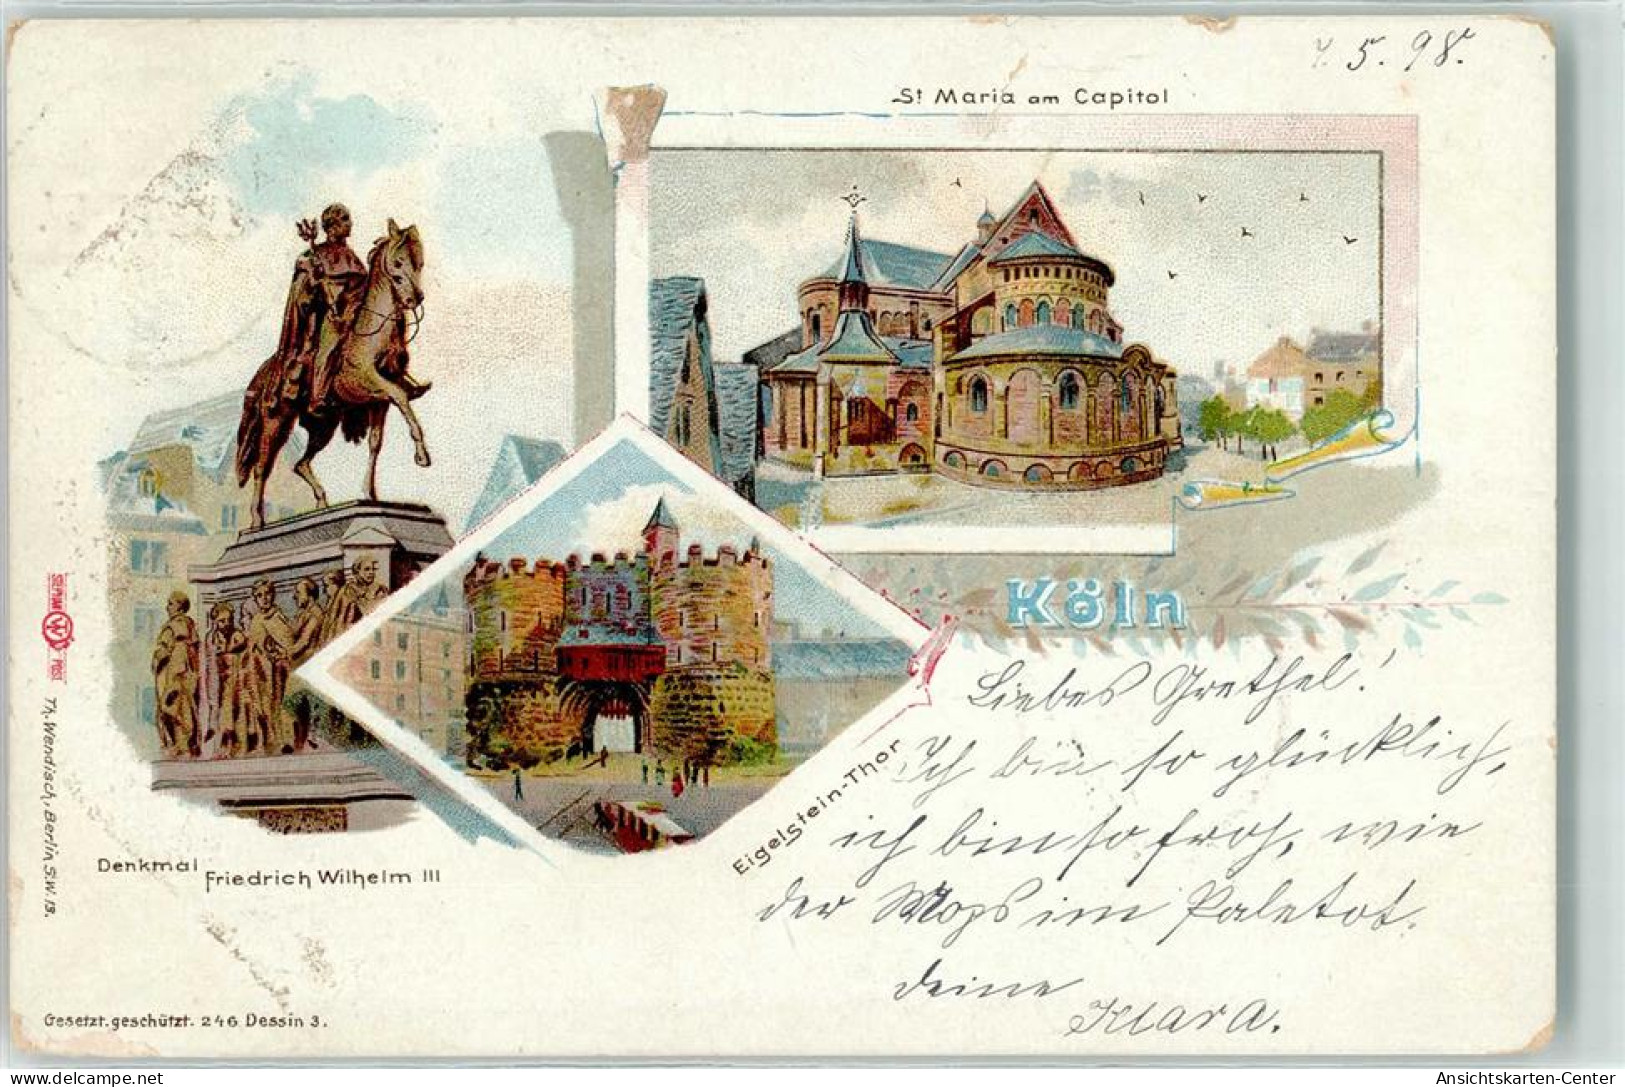 4. 5. 98.
St Maria am Capitol
Köln
Liebes Grethel!
Ich bin so glücklich,
ich bin so froh, wie
der Mops im Paletot.
deine
Klara.
Eigelstein-Thor
Denkmal
Friedrich Wilhelm III
Th. Wendisch, Berlin S.W. 13.
Gesetzt. geschützt. 246 Dessin 3.
delcampe.net
Ansichtskarten-Center